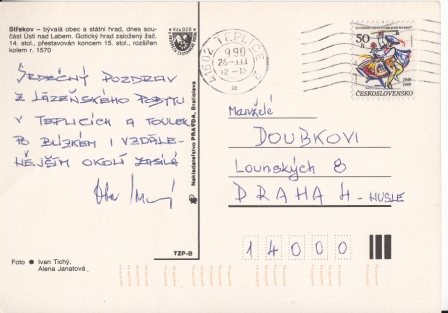 Střekov – bývalá obec a státní hrad, dnes sou-
část Ústí nad Labem. Gotický hrad založený zač.
14. stol., přestavován koncem 15. stol., rozšířen
kolem r. 1570
SRDEČNÝ POZDRAV
Z LÁZEŇSKÉHO POBYTU
V TEPLICÍCH A TOULEK
PO BLÍZKÉM I VZDÁLE-
NĚJŠÍM OKOLÍ ZASÍLÁ
Foto ● Ivan Tichý,
Alena Janatová
TZP-B
Nakladatelství PRAVDA, Bratislava
Kčs 0,20
TEPLICE 2
50
h
1949
1989
ČESKOSLOVENSKO
Manželé
DOUBKOVI
Lounských 8
PRAHA 4 - NUSLE
14000